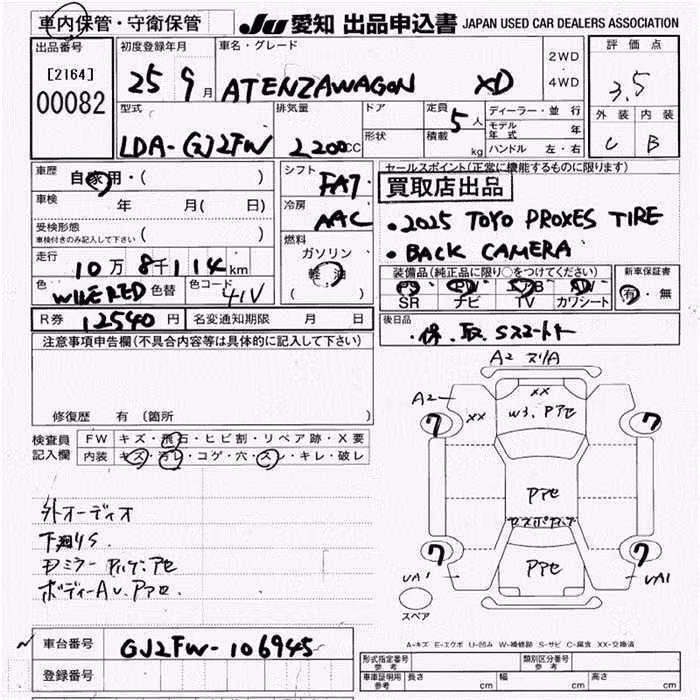 車内保管・守衛保管
JU 愛知 出品申込書 JAPAN USED CAR DEALERS ASSOCIATION
出品番号
[2164]
00082
初度登録年月
25 9月
車名・グレード
ATENZAWAGON XD
2WD
・
4WD
評価点
3.5
外装 内装
C B
型式
LDA-GJ2FW
排気量
2200CC
ドア
形状
定員 5人
積載 kg
ディーラー・並行
モデル年式 年
ハンドル 左・右
車歴 自家用・( )
車検 年 月( 日)
受検形態
車検付きのみ記入して下さい ( )
走行 10万8千114km
色 WINERED 色替 色コード 41V
R券 12540円 名変通知期限 月 日
シフト FA7
冷房 AAC
燃料
ガソリン
軽油
( )
セールスポイント(正常に機能するものに限ります)
買取店出品
・2025 TOYO PROXES TIRE
・BACK CAMERA
装備品(純正品に限り○をつけてください)
PS PW AW
SR ナビ TV カワシート
新車保証書
有・無
後日品
・保.取.Sスマート
注意事項申告欄(不具合内容等は具体的に記入して下さい)
修復歴 有(箇所 )
検査員記入欄
FW キズ・飛石・ヒビ割・リペア跡・X要
内装 キズ・汚レ・コゲ・穴・スレ・キレ・破レ
外オーディオ
下廻りS
ボディーAU.アセ.
A2
A2
XX
XX
W3.アセ
7
7
アセ
7
7
アセ
UA1
UA1
スペア
A-キズ E-エクボ U-凹み W-補修跡 S-サビ C-腐食 XX-交換済
車台番号 GJ2FW-106945
登録番号
形式指定番号
参考
類別区分番号
参考
車庫証明用
参考
長さ cm 幅 cm 高さ cm